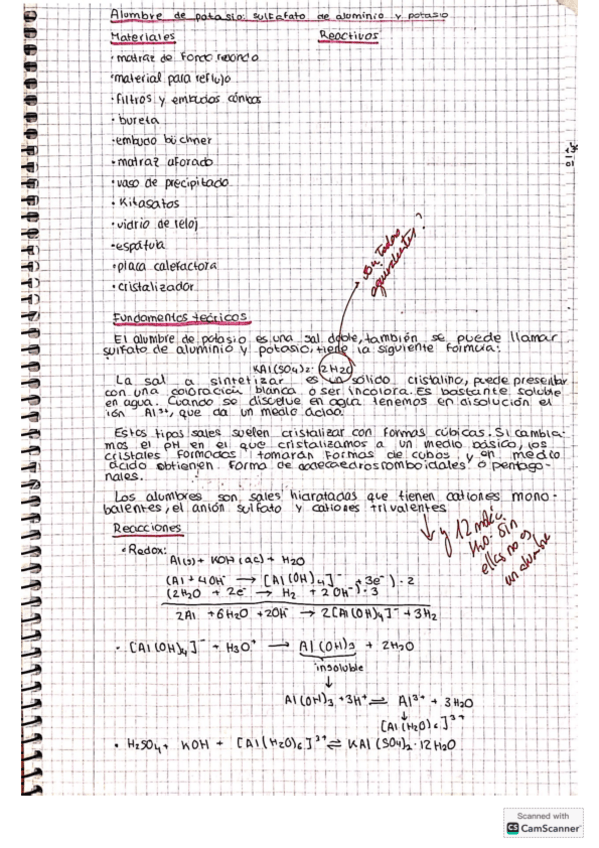 Alumbre de potasio: sulfafato de alominio y potasio
Materiales Reactivos
· matraz de fondo redondo
·material para reflujo
·filtros y embudos cónicos
· bureta
·embudo büchner
·matraz aforado
·vaso de precipitado
· Kitasatos
·vidrio de reloj
·espátula
·placa calefactora
·cristalizador
¿Son todas equivalentes?
Fundamentos teóricos
El alumbre de potasio es una sal doble, también se puede llamar
sulfato de aluminio y potasio, tiene la siguiente formula:
KAl(SO4)2· 12H2O
La sal a sintetizar es un sólido cristalino, puede presentar
con una coloración blanca o ser incolora. Es bastante soluble
en agua. Cuando se disuelve en agua tenemos en disolución el
ión Al³⁺, que da un medio ácido.
Estos tipos sales suelen cristalizar con formas cúbicas. Si cambia-
mos el pH en el que cristalizamos a un medio básico, los
cristales formados tomarán formas de cubos y en medio
ácido obtienen forma de dodecaedros romboidales o pentago-
nales.
Los alumbres son sales hidratadas que tienen cationes mono-
balentes, el anión sulfato y cationes trivalentes
↓ y 12 moléc. H2O. Sin ellas no es un alumbre
Reacciones
· Redox:
Al(s) + KOH (ac) + H2O
(Al + 4OH⁻ → [Al(OH)4]⁻ + 3e⁻) · 2
(2H2O + 2e⁻ → H2 + 2OH⁻) · 3
2Al + 6H2O + 2OH⁻ → 2[Al(OH)4]⁻ + 3H2
· [Al(OH)4]⁻ + H3O⁺ → Al(OH)3 + 2H2O
insoluble
↓
Al(OH)3 + 3H⁺ ⇌ Al³⁺ + 3H2O
↓
[Al(H2O)6]³⁺
· H2SO4 + KOH + [Al(H2O)6]³⁺ ⇌ KAl(SO4)2·12H2O
Scanned with
CS CamScanner